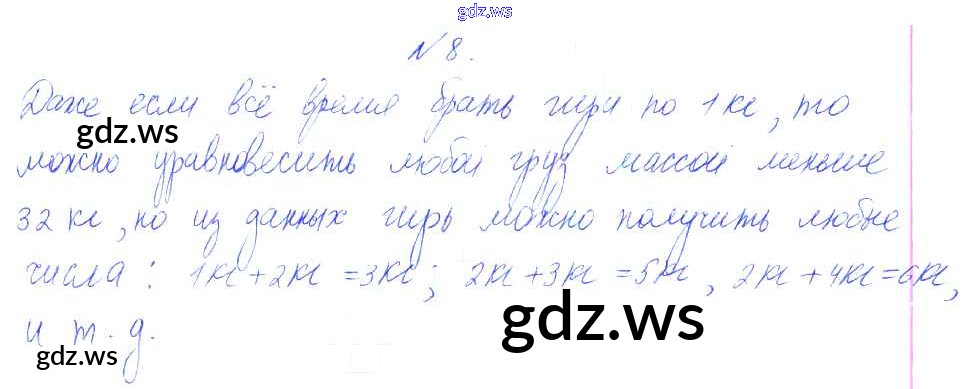 gdz.ws
№8.
Даже если всё время брать гири по 1 кг, то
можно уравновесить любой груз массой меньше
gdz.ws
32 кг, но из данных гирь можно получить любые
числа: 1кг+2кг=3кг; 2кг+3кг=5кг, 2кг+4кг=6кг,
gdz.ws
и т.д.
gdz.ws